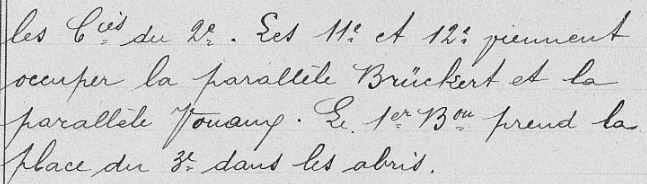 les Cies du 2e. Les 11e et 12e viennent
occuper la parallèle Brückert et la
parallèle Vouaux. Le 1er Bon prend la
place du 3e dans les abris.